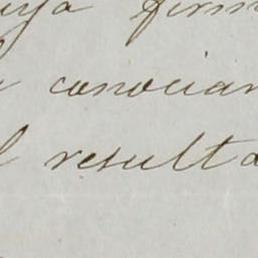 uya firm
conocian
l resulta